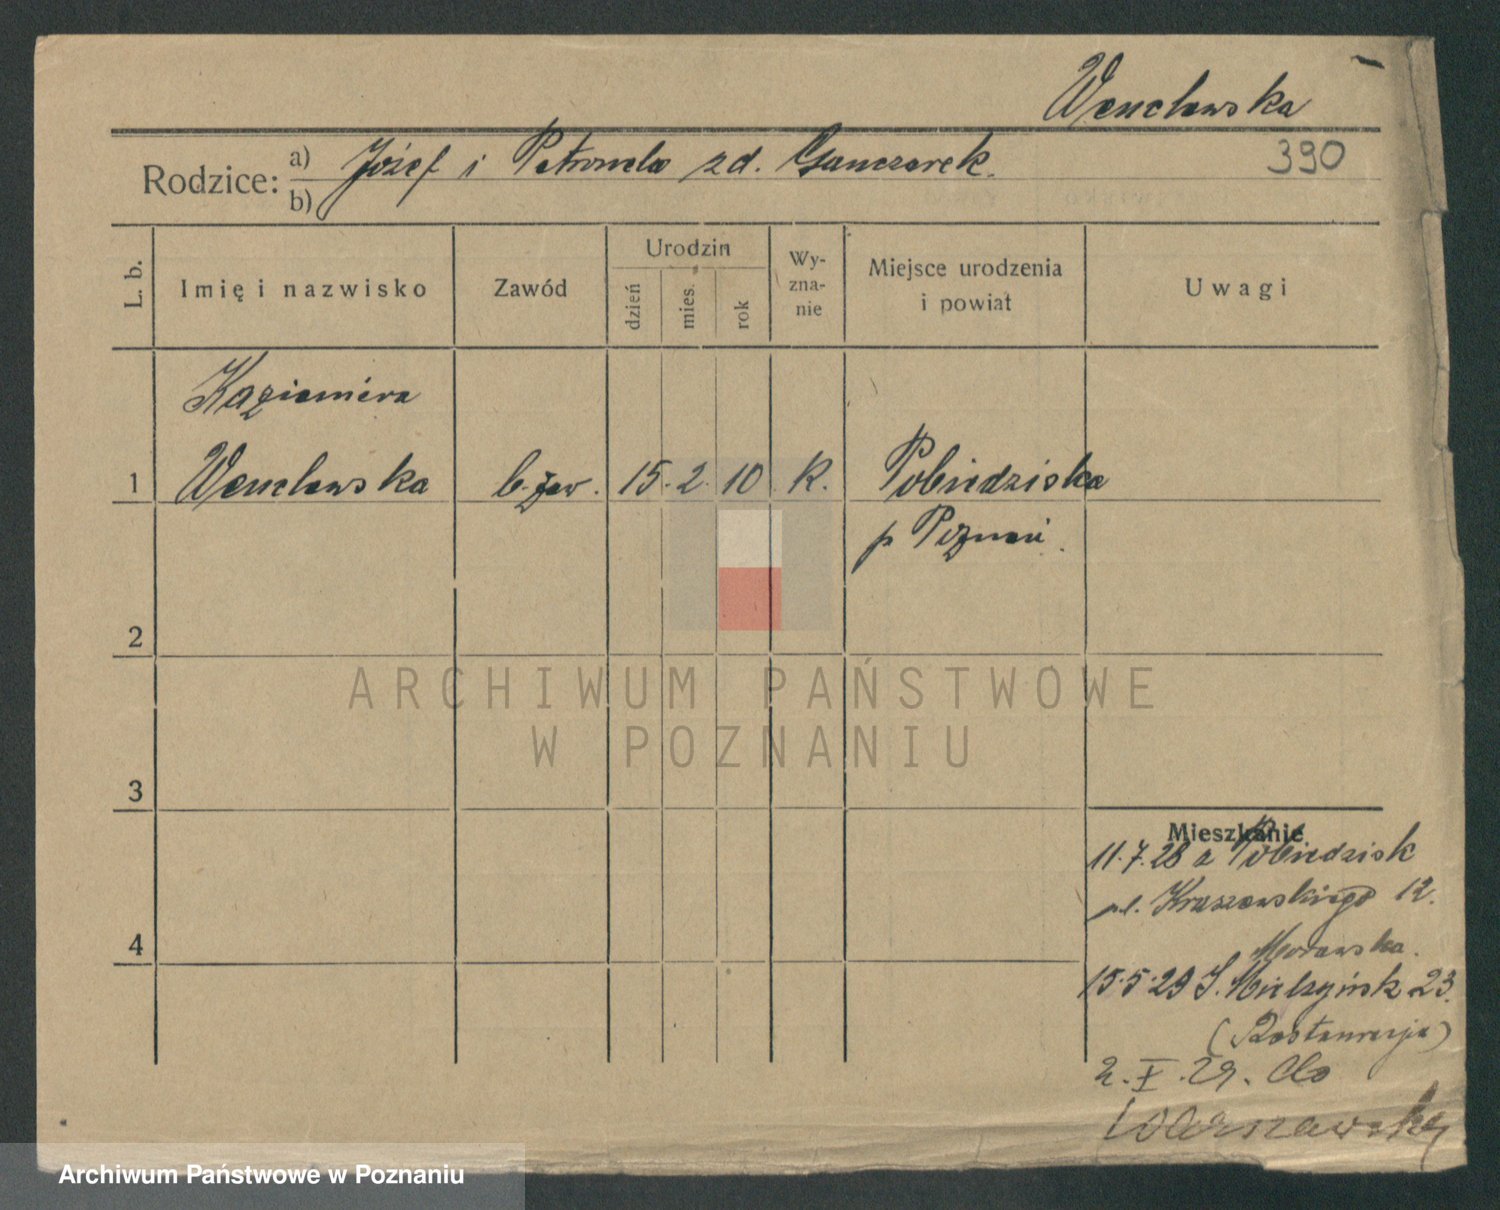 Wencławska
Rodzice: a) Józef i Petronela zd. Ganczarek.
b)
390
L. b. Imię i nazwisko Zawód Urodzin dzień mies. rok Wy-zna-nie Miejsce urodzenia i powiat Uwagi
Kazimiera
1 Wencławska b. zaw. 15. 2. 10 K. Pobiedziska
p Poznań.
2
ARCHIWUM PAŃSTWOWE
W POZNANIU
3
Mieszkanie
11.7.28 z Pobiedzisk
ul. Kraszewskiego 12.
4
Morawska.
15.5.29 S. Mielżyńsk 23.
(Restauracja)
2.X.29. do
Warszawsky
Archiwum Państwowe w Poznaniu